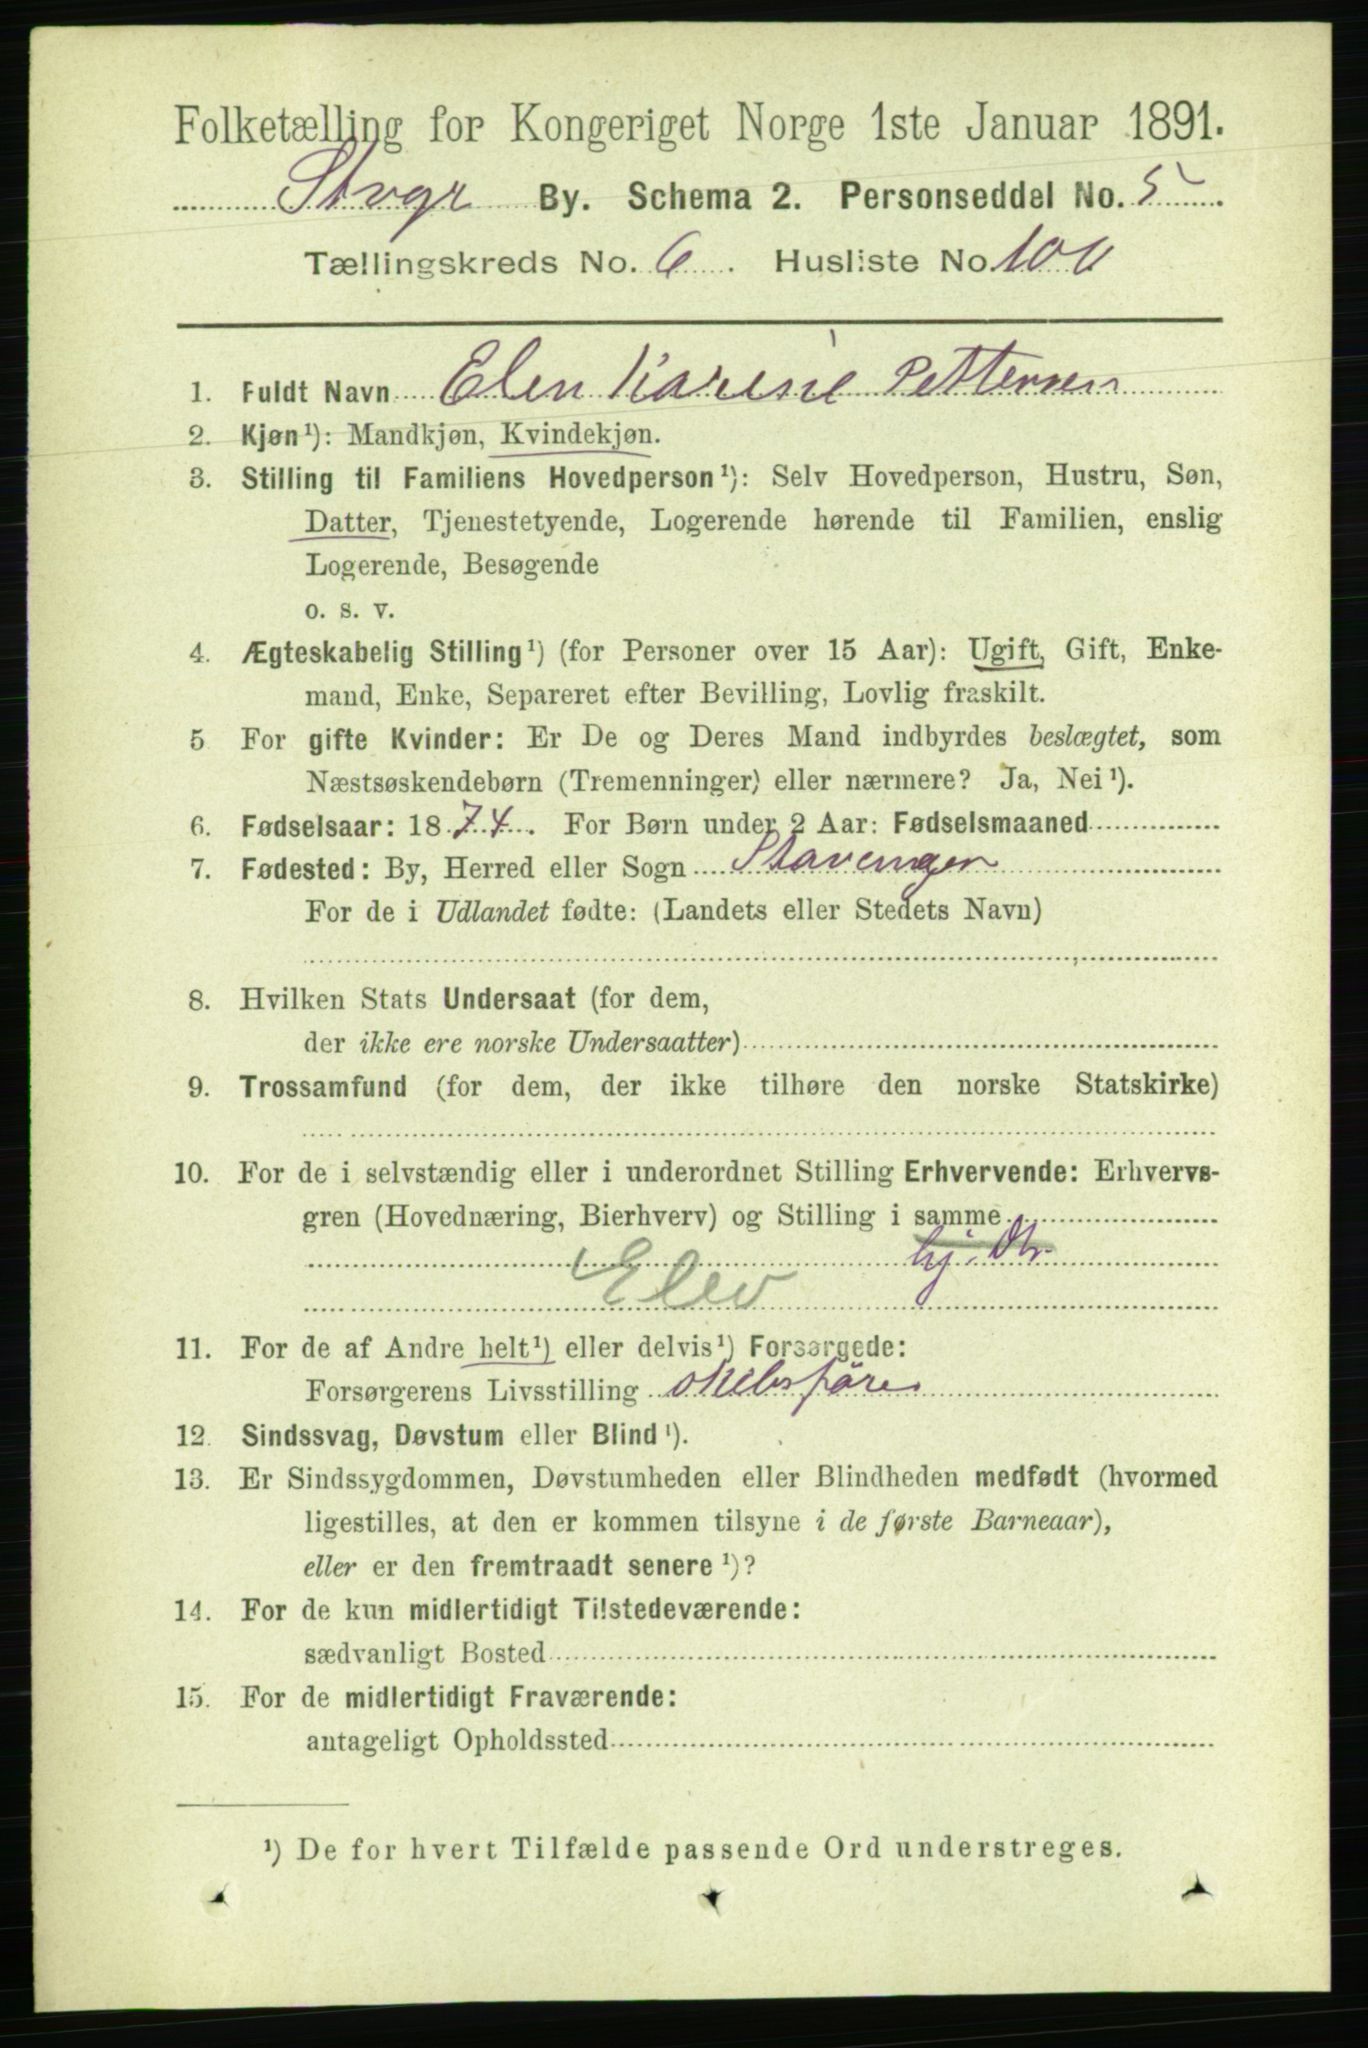 Folketælling for Kongeriget Norge 1ste Januar 1891.
Stvgr By. Schema 2. Personseddel No. 5
Tællingskreds No. 6. Husliste No 100
1. Fuldt Navn Elen Karine Pettersen
2. Kjøn¹): Mandkjøn, Kvindekjøn.
3. Stilling til Familiens Hovedperson¹): Selv Hovedperson, Hustru, Søn,
Datter, Tjenestetyende, Logerende hørende til Familien, enslig
Logerende, Besøgende
o. s. v.
4. Ægteskabelig Stilling¹) (for Personer over 15 Aar): Ugift, Gift, Enke-
mand, Enke, Separeret efter Bevilling, Lovlig fraskilt.
5 For gifte Kvinder: Er De og Deres Mand indbyrdes beslægtet, som
Næstsøskendebørn (Tremenninger) eller nærmere? Ja, Nei¹).
6. Fødselsaar: 1874. For Børn under 2 Aar: Fødselsmaaned
7. Fødested: By, Herred eller Sogn Stavanger
For de i Udlandet fødte: (Landets eller Stedets Navn)
8. Hvilken Stats Undersaat (for dem,
der ikke ere norske Undersaatter)
9. Trossamfund (for dem, der ikke tilhøre den norske Statskirke)
10. For de i selvstændig eller i underordnet Stilling Erhvervende: Erhvervs-
gren (Hovednæring, Bierhverv) og Stilling i samme
hj. Dtr.
Elev
11. For de af Andre helt¹) eller delvis¹) Forsørgede:
Forsørgerens Livsstilling skibsfører
12. Sindssvag, Døvstum eller Blind¹).
13. Er Sindssygdommen, Døvstumheden eller Blindheden medfødt (hvormed
ligestilles, at den er kommen tilsyne i de første Barneaar),
eller er den fremtraadt senere¹)?
14. For de kun midlertidigt Tilstedeværende:
sædvanligt Bosted
15. For de midlertidigt Fraværende:
antageligt Opholdssted
¹) De for hvert Tilfælde passende Ord understreges.